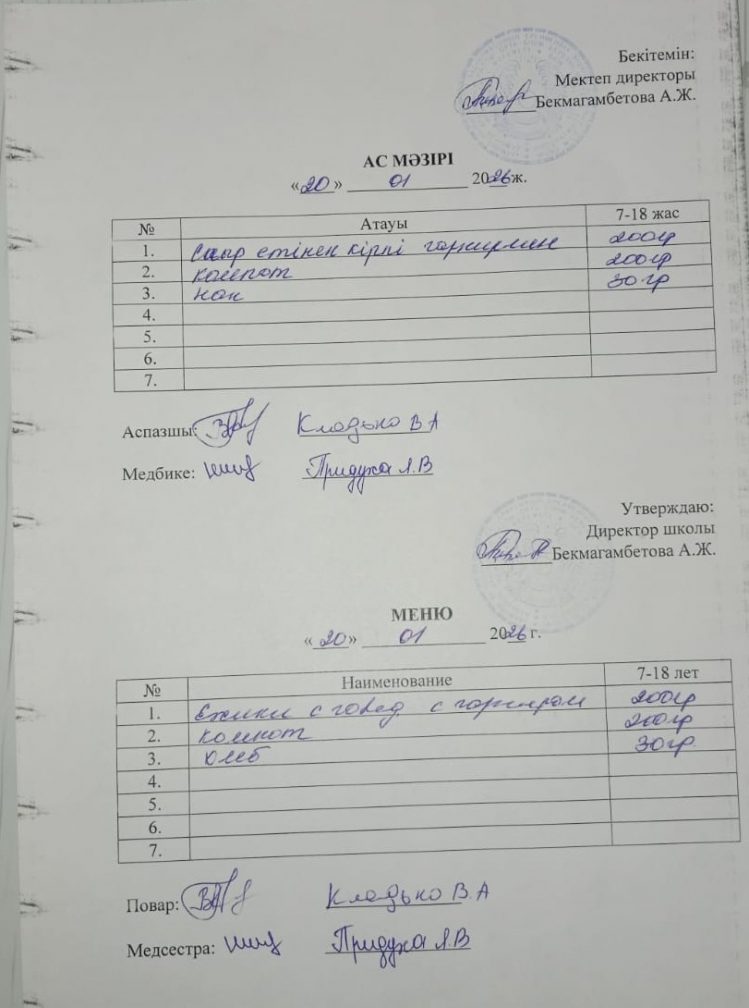 Бекітемін:
Мектеп директоры
Бекмагамбетова А.Ж.
АС МӘЗІРІ
«20» 01 2026ж.
№ Атауы 7-18 жас
1. Сиыр етінен кірпі гарнирмен 200гр
2. Компот 200гр
3. Нан 30 гр
4.
5.
6.
7.
Аспазшы: Кладько В А
Медбике: Придуха Л.В
Утверждаю:
Директор школы
Бекмагамбетова А.Ж.
МЕНЮ
«20» 01 2026 г.
№ Наименование 7-18 лет
1. Ежики с говяд. с гарниром 200гр
2. Компот 200гр
3. Хлеб 30гр.
4.
5.
6.
7.
Повар: Кладько В.А
Медсестра: Придуха Л.В